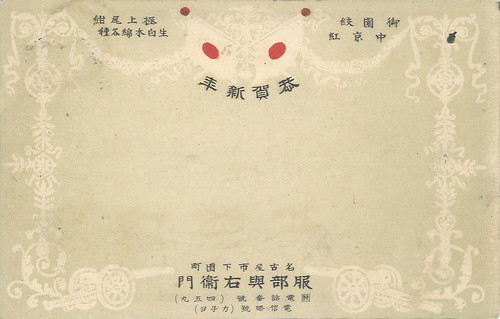 御園絞
中京紅
極上尾紺
生白木綿各種
恭賀新年
名古屋市下園町
服部與右衛門
電話番號（四五九）
電信略號（ヨ子カ）